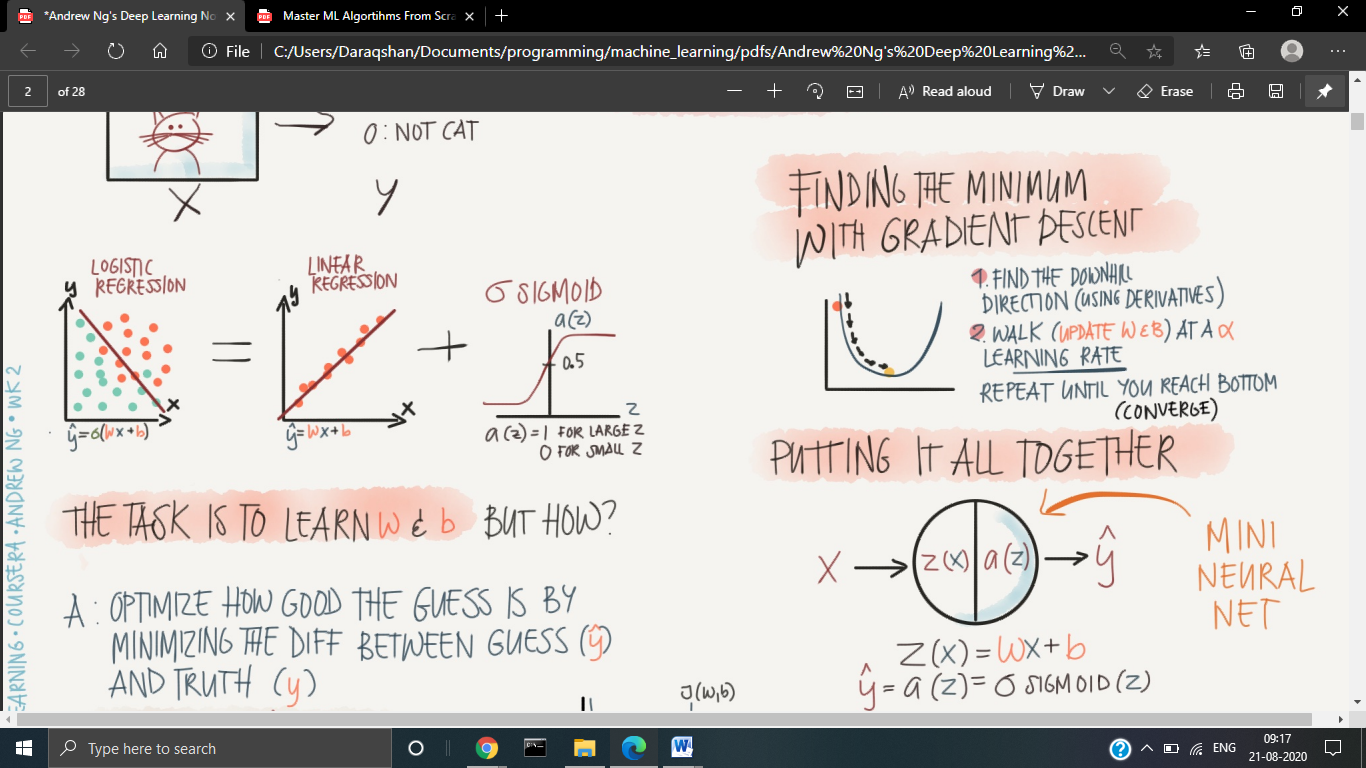 *Andrew Ng's Deep Learning No
Master ML Algortihms From Scra
File
C:/Users/Daraqshan/Documents/programming/machine_learning/pdfs/Andrew%20Ng's%20Deep%20Learning%2...
2
of 28
Read aloud
Draw
Erase
0: NOT CAT
X
Y
LOGISTIC
REGRESSION
y
x
ŷ=σ(wx+b)
=
LINEAR
REGRESSION
y
x
ŷ=wx+b
+
σ SIGMOID
a(z)
0.5
z
a(z)=1 FOR LARGE Z
0 FOR SMALL Z
THE TASK IS TO LEARN W & b BUT HOW?
A: OPTIMIZE HOW GOOD THE GUESS IS BY
MINIMIZING THE DIFF BETWEEN GUESS (ŷ)
AND TRUTH (y)
J(w,b)
EARNING • COURSERA • ANDREW NG • WK 2
FINDING THE MINIMUM
WITH GRADIENT DESCENT
1. FIND THE DOWNHILL
DIRECTION (USING DERIVATIVES)
2. WALK (UPDATE W & B) AT A α
LEARNING RATE
REPEAT UNTIL YOU REACH BOTTOM
(CONVERGE)
PUTTING IT ALL TOGETHER
X
z(x) a(z)
ŷ
MINI
NEURAL
NET
Z(x) = Wx+b
ŷ = a(z) = σ SIGMOID(z)
Type here to search
W
ENG
09:17
21-08-2020